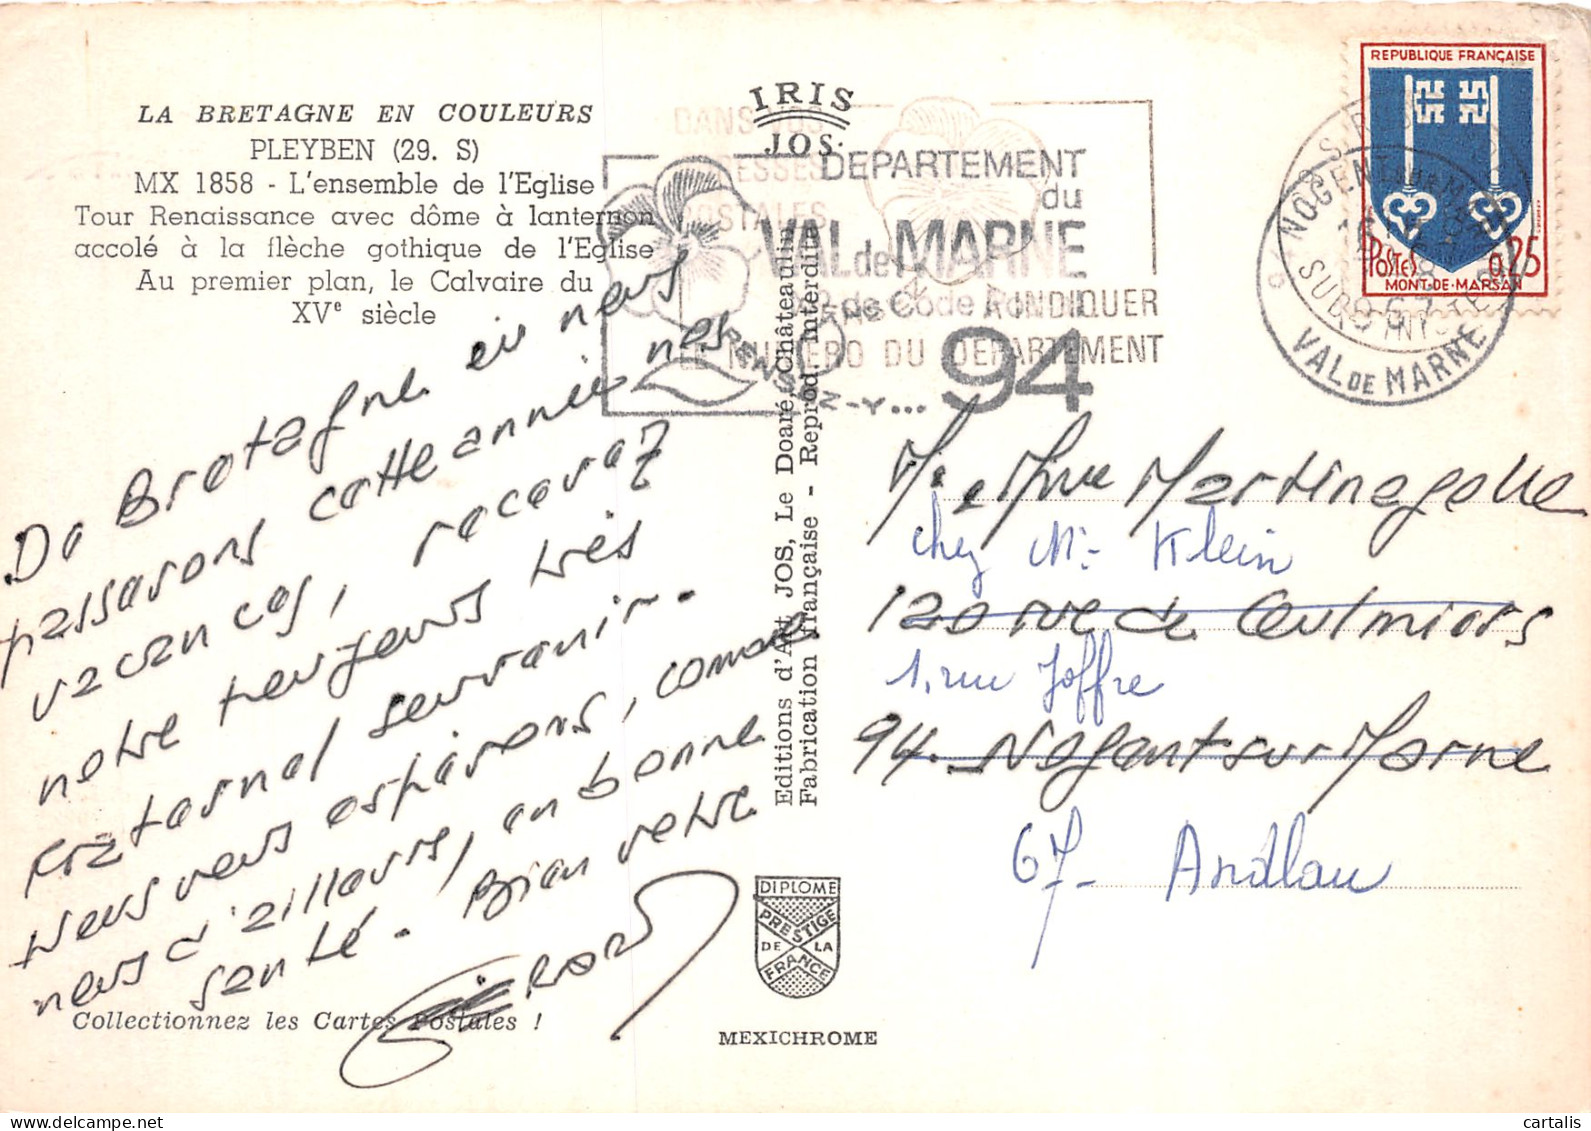 LA BRETAGNE EN COULEURS
PLEYBEN (29. S)
MX 1858 - L'ensemble de l'Eglise
Tour Renaissance avec dôme à lanternon
accolé à la flèche gothique de l'Eglise
Au premier plan, le Calvaire du
XVe siècle
De Bretagne où nous
passerons cette année nos
vacances, recevez
notre toujours très
fraternel souvenir.
Nous vous espérons, comme
nous d'ailleurs, en bonne
santé - Bien votre
GÉRARD
Collectionnez les Cartes Postales !
IRIS
JOS.
Editions d'Art JOS, Le Doaré, Châteaulin
Fabrication française - Reprod. interdite
DIPLOME
PRESTIGE
DE LA
FRANCE
MEXICHROME
DANS VOS
POSTALES
INDIQUER
LE NUMERO DU DEPARTEMENT
DEPARTEMENT
du
VAL de MARNE
de Code
94
PENSEZ-Y...
NOGENT SUR MARNE
VAL DE MARNE
REPUBLIQUE FRANÇAISE
POSTES 0,25
MONT-DE-MARSAN
M. et Mme Martinagolle
chez Mr Klein
120 rue de Coulmiers
1, rue Joffre
94. Nogent sur Marne
67- Andlau
cartalis